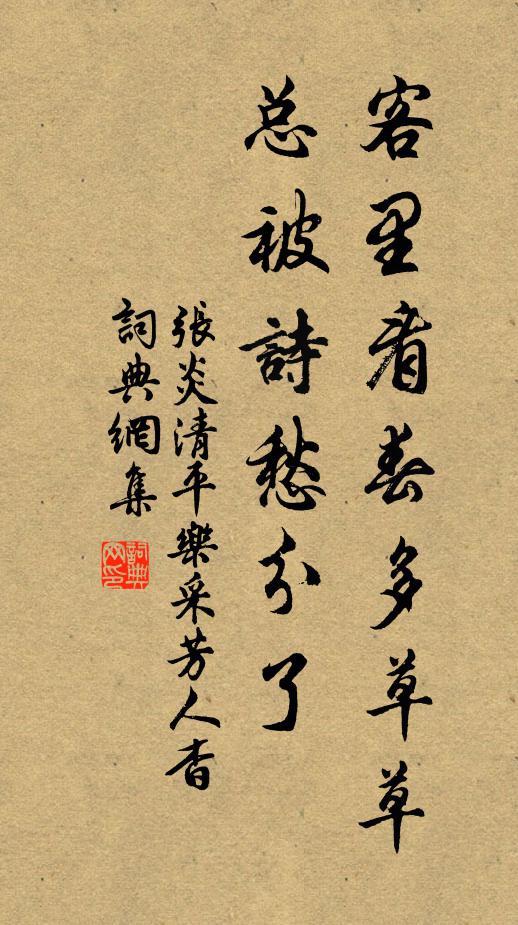 客里看春多草草
总被詩愁分了
張炎清平樂采芳人杳
詞典網集
詞典
网印